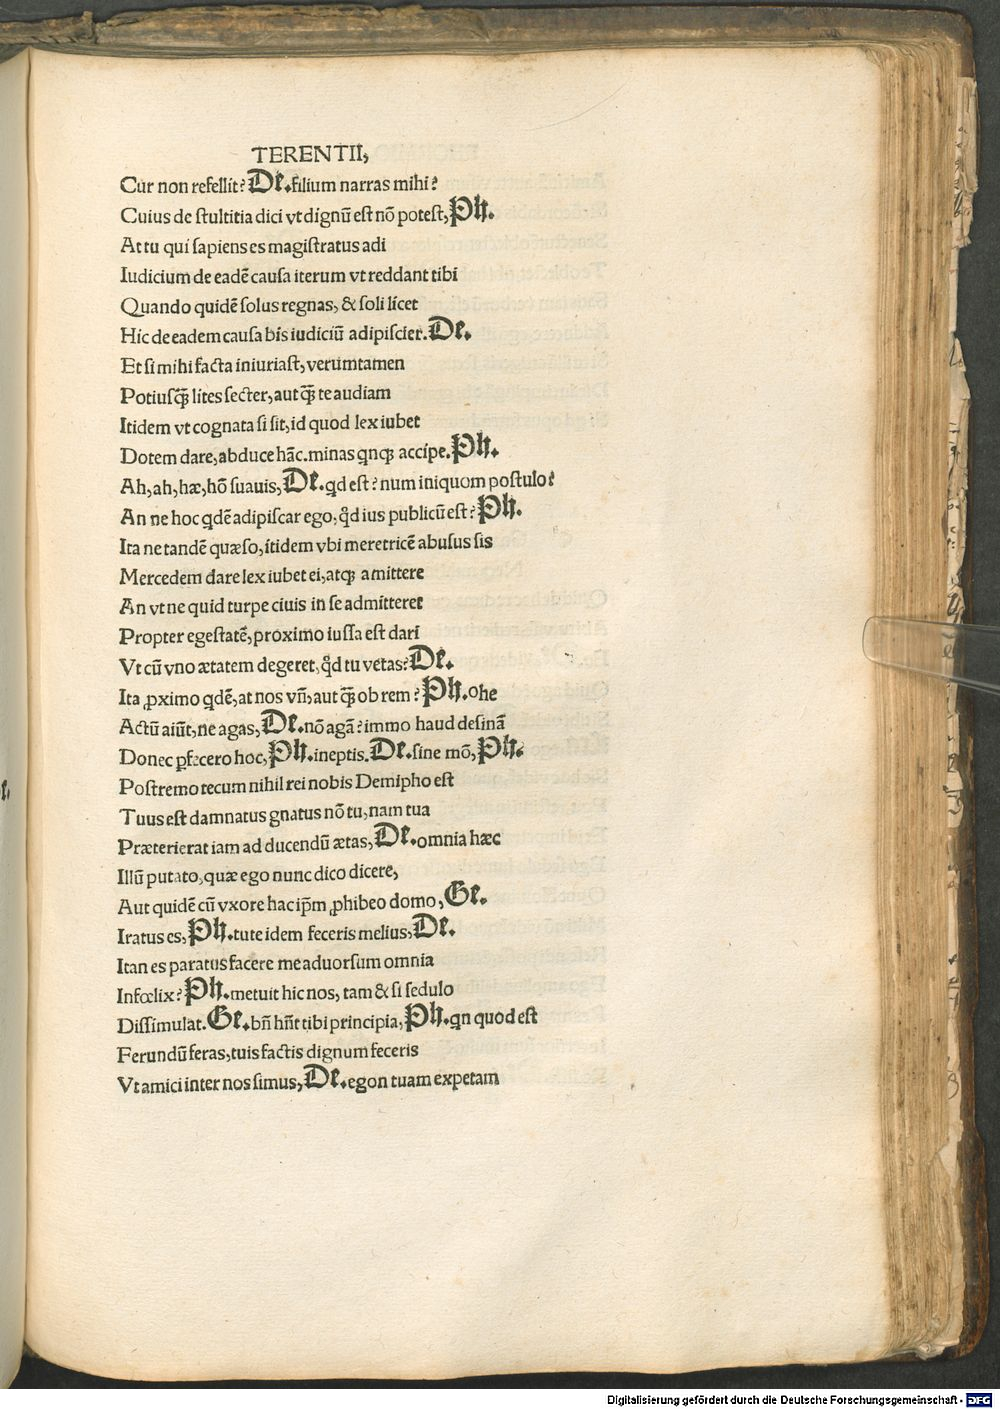 TERENTII,
Cur non refellit? De. filium narras mihi?
Cuius de stultitia dici vt dignũ est nõ potest, Ph.
At tu qui sapiens es magistratus adi
Iudicium de eadẽ causa iterum vt reddant tibi
Quando quidẽ solus regnas, & soli licet
Hic de eadem causa bis iudiciũ adipiscier. De.
Et si mihi facta iniuriast, verumtamen
Potiusq̃ lites secter, aut q̃ te audiam
Itidem vt cognata si sit, id quod lex iubet
Dotem dare, abduce hãc. minas qnqꝫ accipe. Ph.
Ah, ah, hæ, hõ suauis, De. qd est? num iniquom postulo?
An ne hoc qdẽ adipiscar ego, qd̓ ius publicũ est? Ph.
Ita ne tandẽ quæso, itidem vbi meretricẽ abusus sis
Mercedem dare lex iubet ei, atqꝫ amittere
An vt ne quid turpe ciuis in se admitteret
Propter egestatẽ, proximo iussa est dari
Vt cũ vno ætatem degeret, qd̓ tu vetas? De.
Ita ꝓximo qdẽ, at nos vñ, aut q̃ ob rem? Ph. Ohe
Actũ aiũt, ne agas, De. nõ agã? immo haud desinã
Donec ꝑfecero hoc, Ph. ineptis. De. sine mõ, Ph.
Postremo tecum nihil rei nobis Demipho est
Tuus est damnatus gnatus nõ tu, nam tua
Præterierat iam ad ducendũ ætas, De. omnia hæc
Illũ putato, quæ ego nunc dico dicere,
Aut quidẽ cũ vxore hac ip̃m ꝓhibeo domo, Ge.
Iratus es, Ph. tute idem feceris melius, De.
Itan es paratus facere me aduorsum omnia
Infœlix? Ph. metuit hic nos, tam & si sedulo
Dissimulat. Ge. bñ hñt tibi principia, Ph. qn quod est
Ferundũ feras, tuis factis dignum feceris
Vt amici inter nos simus, De. egon tuam expetam
Digitalisierung gefördert durch die Deutsche Forschungsgemeinschaft - DFG